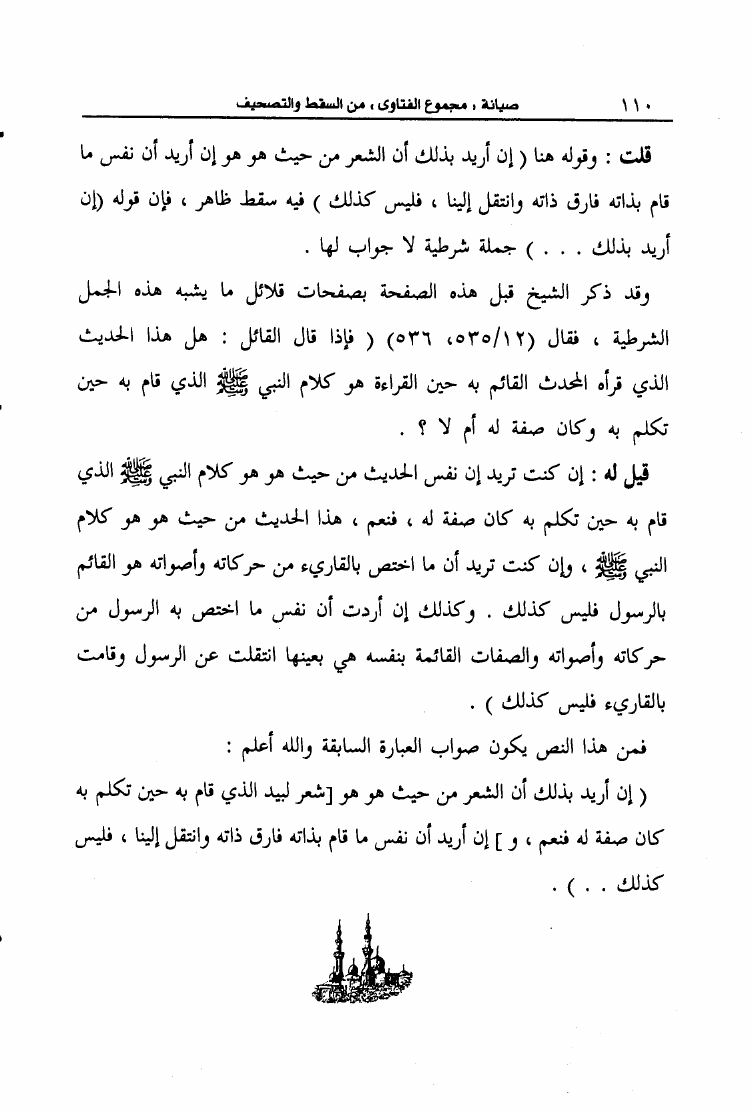 ١١٠ صيانة ، مجموع الفتاوى ، من السقط والتصحيف
قلت : وقوله هنا ( إن أريد بذلك أن الشعر من حيث هو هو إن أريد أن نفس ما
قام بذاته فارق ذاته وانتقل إلينا ، فليس كذلك ) فيه سقط ظاهر ، فإن قوله (إن
أريد بذلك . . . ) جملة شرطية لا جواب لها .
وقد ذكر الشيخ قبل هذه الصفحة بصفحات قلائل ما يشبه هذه الجمل
الشرطية ، فقال (٥٣٥/١٢، ٥٣٦) ( فإذا قال القائل : هل هذا الحديث
الذي قرأه المحدث القائم به حين القراءة هو كلام النبي ﷺ الذي قام به حين
تكلم به وكان صفة له أم لا ؟ .
قيل له : إن كنت تريد إن نفس الحديث من حيث هو هو كلام النبي ﷺ الذي
قام به حين تكلم به كان صفة له ، فنعم ، هذا الحديث من حيث هو هو كلام
النبي ﷺ ، وإن كنت تريد أن ما اختص بالقاريء من حركاته وأصواته هو القائم
بالرسول فليس كذلك . وكذلك إن أردت أن نفس ما اختص به الرسول من
حركاته وأصواته والصفات القائمة بنفسه هي بعينها انتقلت عن الرسول وقامت
بالقاريء فليس كذلك ) .
فمن هذا النص يكون صواب العبارة السابقة والله أعلم :
( إن أريد بذلك أن الشعر من حيث هو هو [شعر لبيد الذي قام به حين تكلم به
كان صفة له فنعم ، و ] إن أريد أن نفس ما قام بذاته فارق ذاته وانتقل إلينا ، فليس
كذلك . . ) .